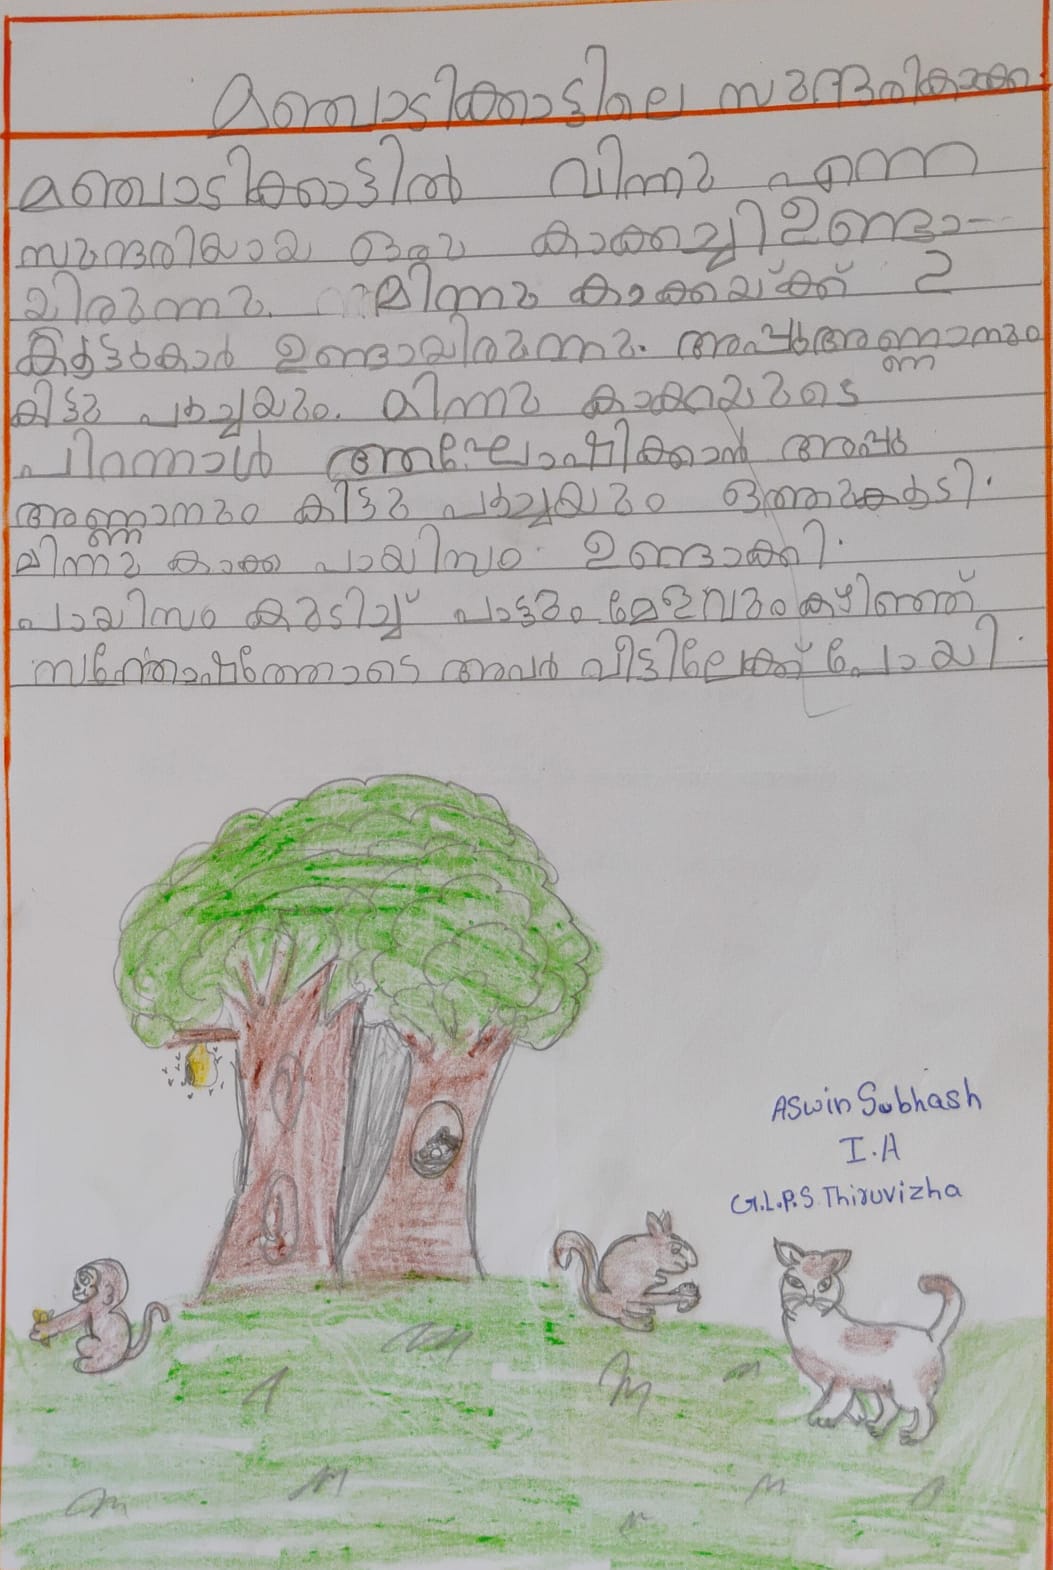 മഞ്ചാടിക്കാട്ടിലെ സുന്ദരികാക്ക.
മഞ്ചാടിക്കാട്ടിൽ മിന്നു എന്ന
സുന്ദരിയായ ഒരു കാക്കച്ചി ഉണ്ടാ-
യിരുന്നു. മിന്നു കാക്കയ്ക്ക് 2
കൂട്ടുകാർ ഉണ്ടായിരുന്നു. അപ്പുഅണ്ണാനും
കിട്ടു പൂച്ചയും. മിന്നു കാക്കയുടെ
പിറന്നാൾ ആഘോഷിക്കാൻ അപ്പു
അണ്ണാനും കിട്ടു പൂച്ചയും ഒത്തുകൂടി.
മിന്നു കാക്ക പായിസം ഉണ്ടാക്കി.
പായിസം കുടിച്ച് പാട്ടും മേളവും കഴിഞ്ഞ്
സന്തോഷത്തോടെ അവർ വീട്ടിലേക്ക് പോയി.
Aswin Subhash
I.A
G.L.P.S. Thiruvizha